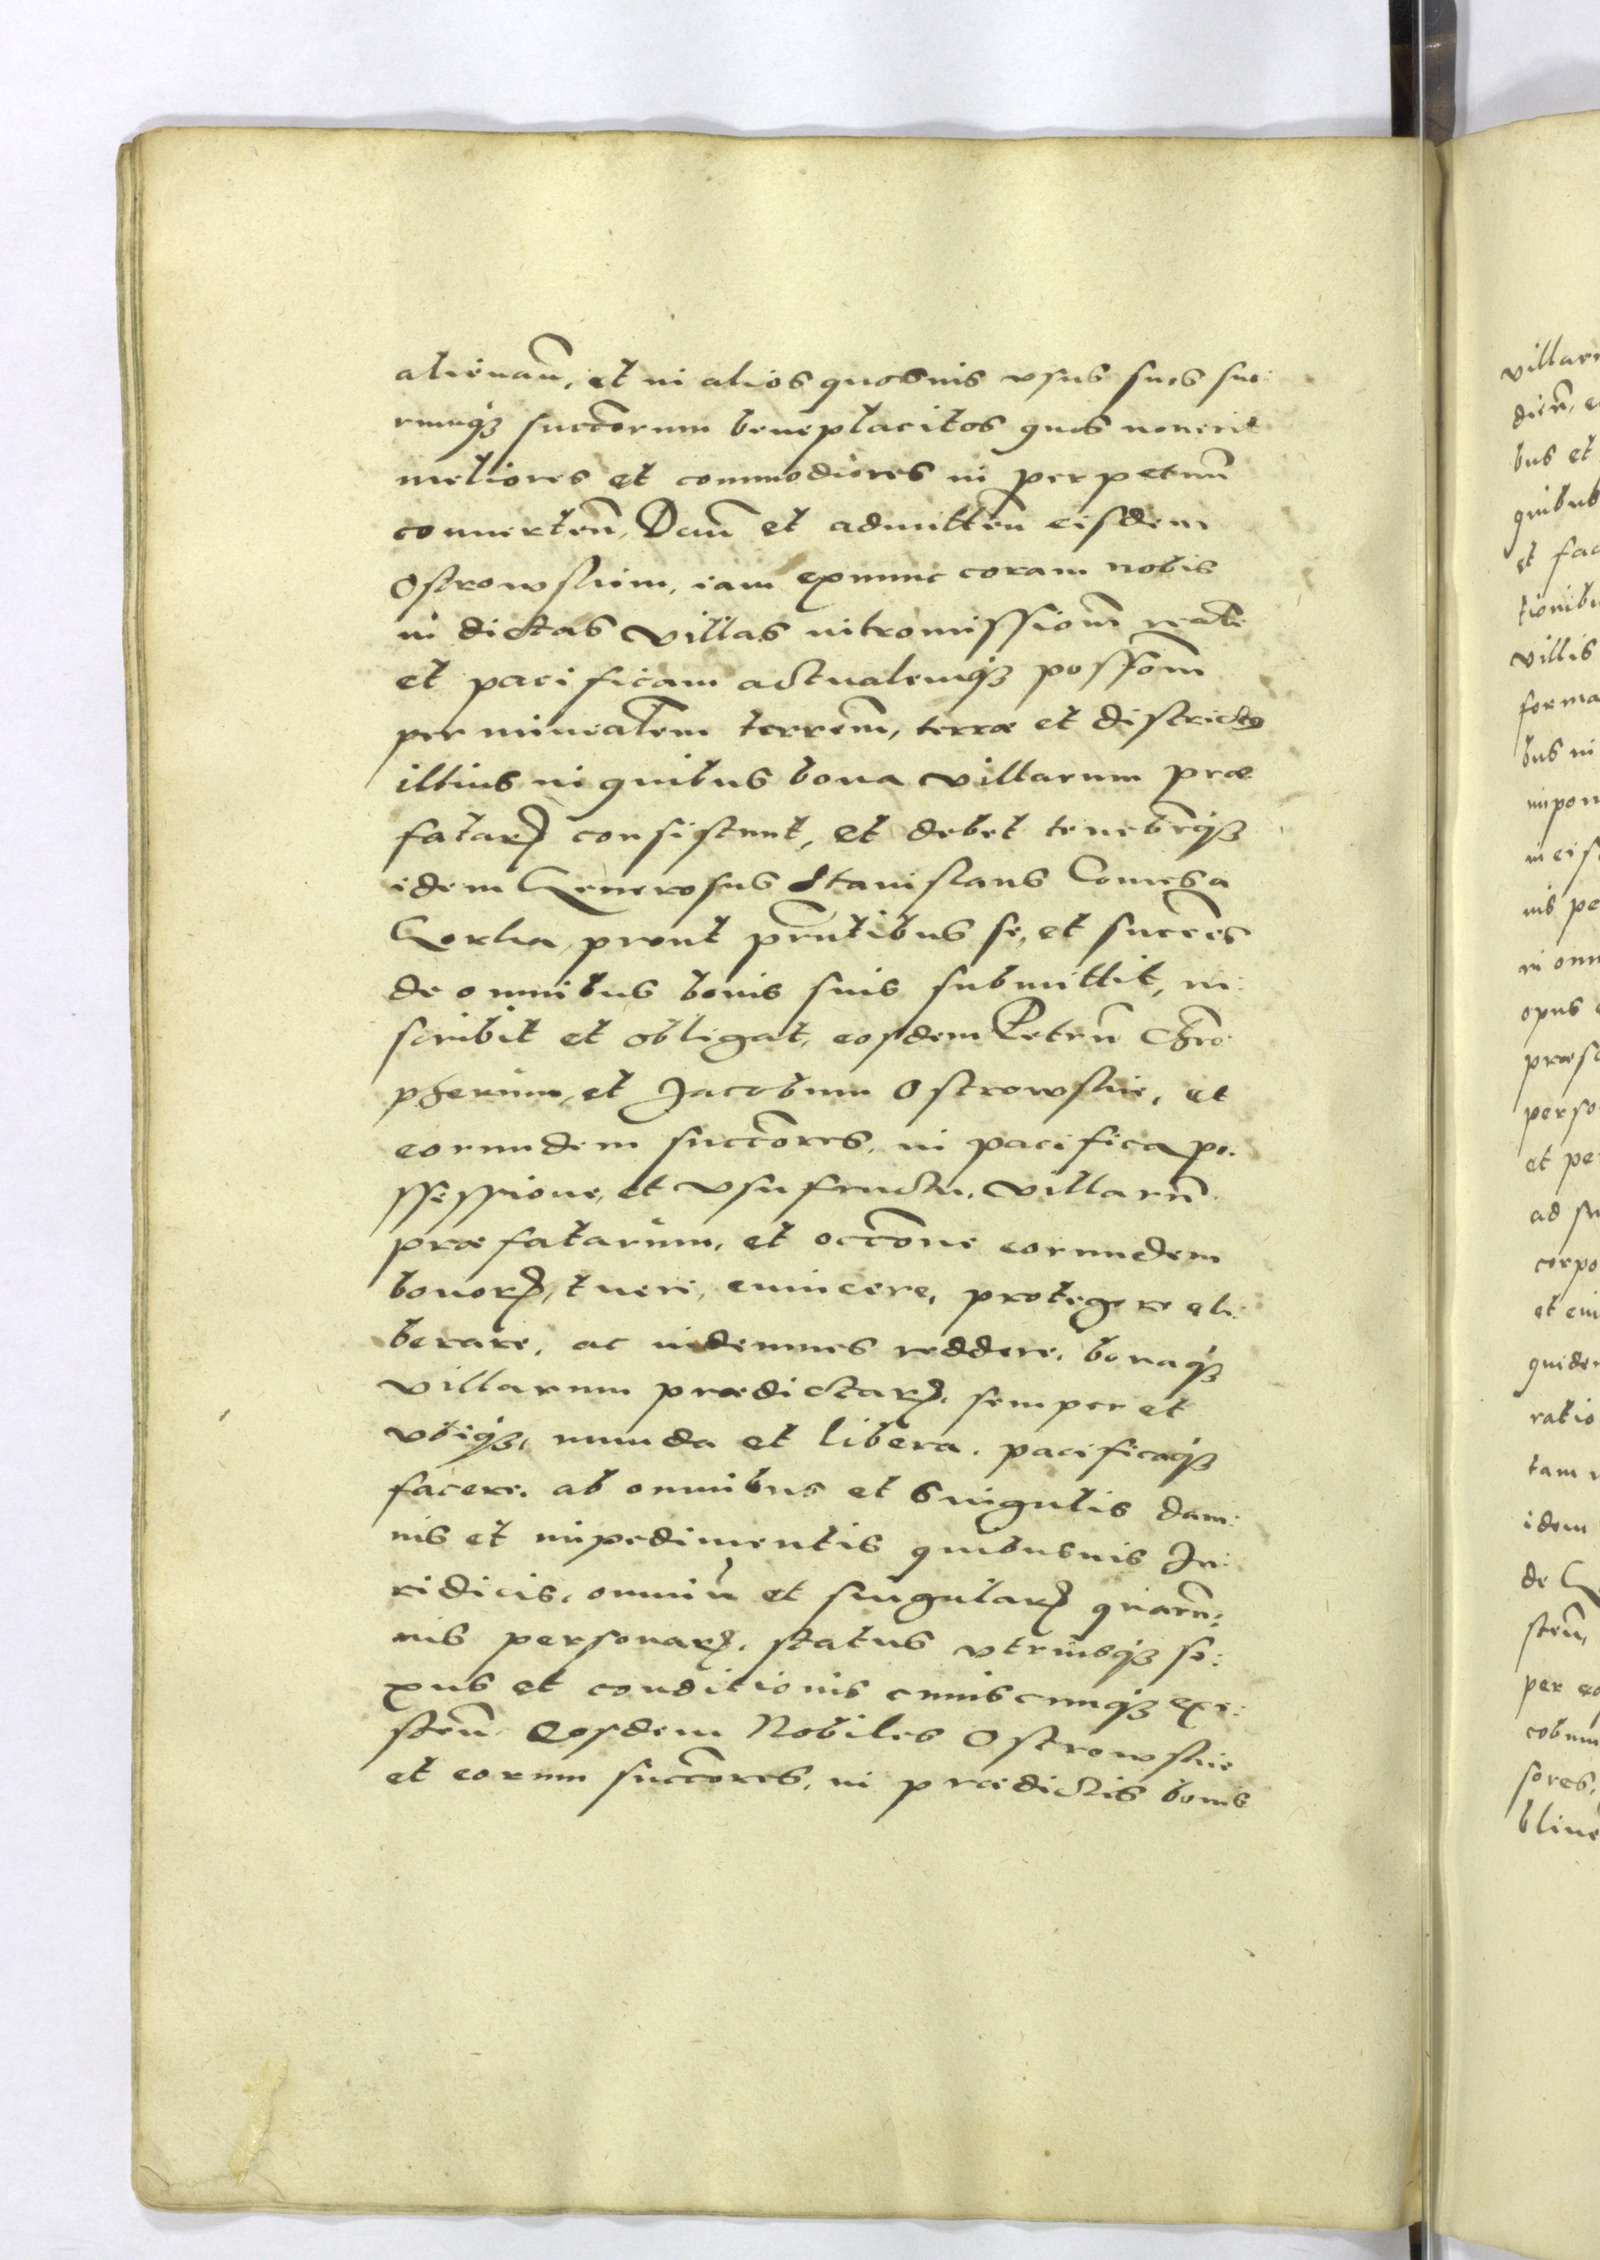 alienan̄, et in alios quosuis vsus suos suo:
rumq3 succorum beneplacitos quos nouerit
meliores et commodiores in perpetuū
conuerten̄. Dan̄ et admitten̄ eisdem
Ostrowskim, iam exnunc coram nobis
in dictas villas intromissionem realē
et pacificam actualemq3 possōnem
per ministerialem terrem̄, terræ et districtus
illius in quibus bona villarum præ
fatarꝝ consistunt, et debet tenebitq3
idem Generosus Stanislaus Comes a
Gorka, prout pn̄tibus se, et succes
de omnibus bonis suis submittit, in:
scribit et obligat, eosdem Petrū Chro:
pherum, et Jacobum Ostrowskie, et
eorundem succores, in pacifica po:
ssessione, et vsufructu, villarū
præfatarum, et occōne eorundem
bonorꝝ, tueri, euincere, protegere eli:
berare, ac indemnes reddere, bonaq3
villarum prædictarꝝ, semper et
vbiq3, munda et libera, pacificaq3
facere, ab omnibus et singulis dam:
nis et impedimentis quibusuis Iu:
ridicis, omniū et singularꝝ quarū:
uis personarꝝ, status vtriusq3 se:
xus et conditionis cuiuscunq3 exi:
sten̄. Eosdem Nobiles Ostrowskie
et eorum succores, in prædictis bonis
villar
dicū, e
bus et
quibus
et fac
tionibu
villis
forma
bus in
impon
in eis
nis pe
ri omn
opus
præsc
perso
et per
ad su
corpo
et eui
quide
ratio
tam
idem
de G
sten̄,
per eo
cobum
sores,
bliue